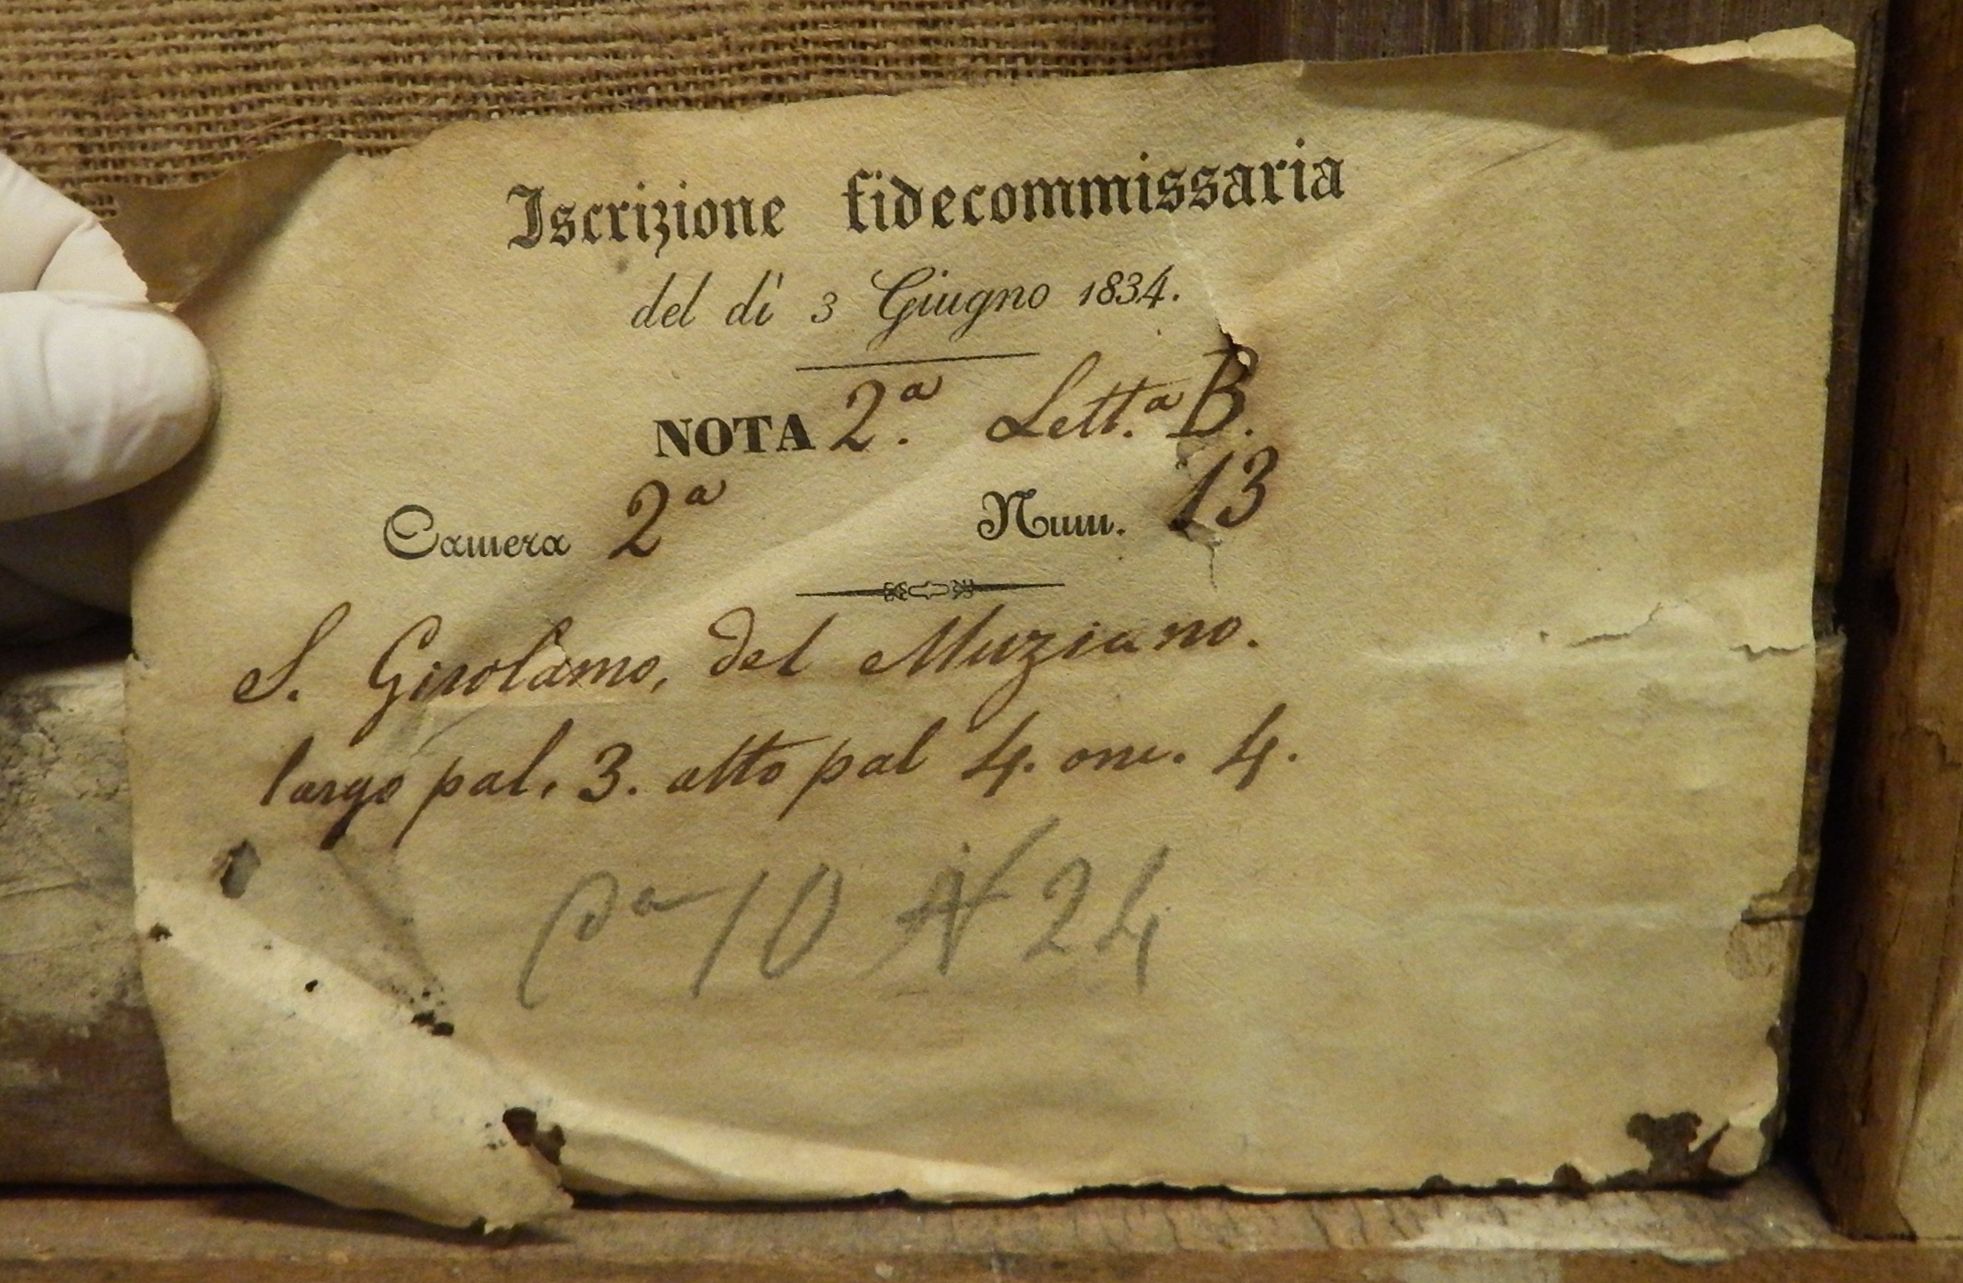 Iscrizione fidecommissaria
del dì 3 Giugno 1834.
NOTA 2.ª Lett.ª B.
Camera 2ª Num. 13
S. Girolamo, del Muziano.
largo pal. 3. alto pal 4. onc. 4.
10 N 24